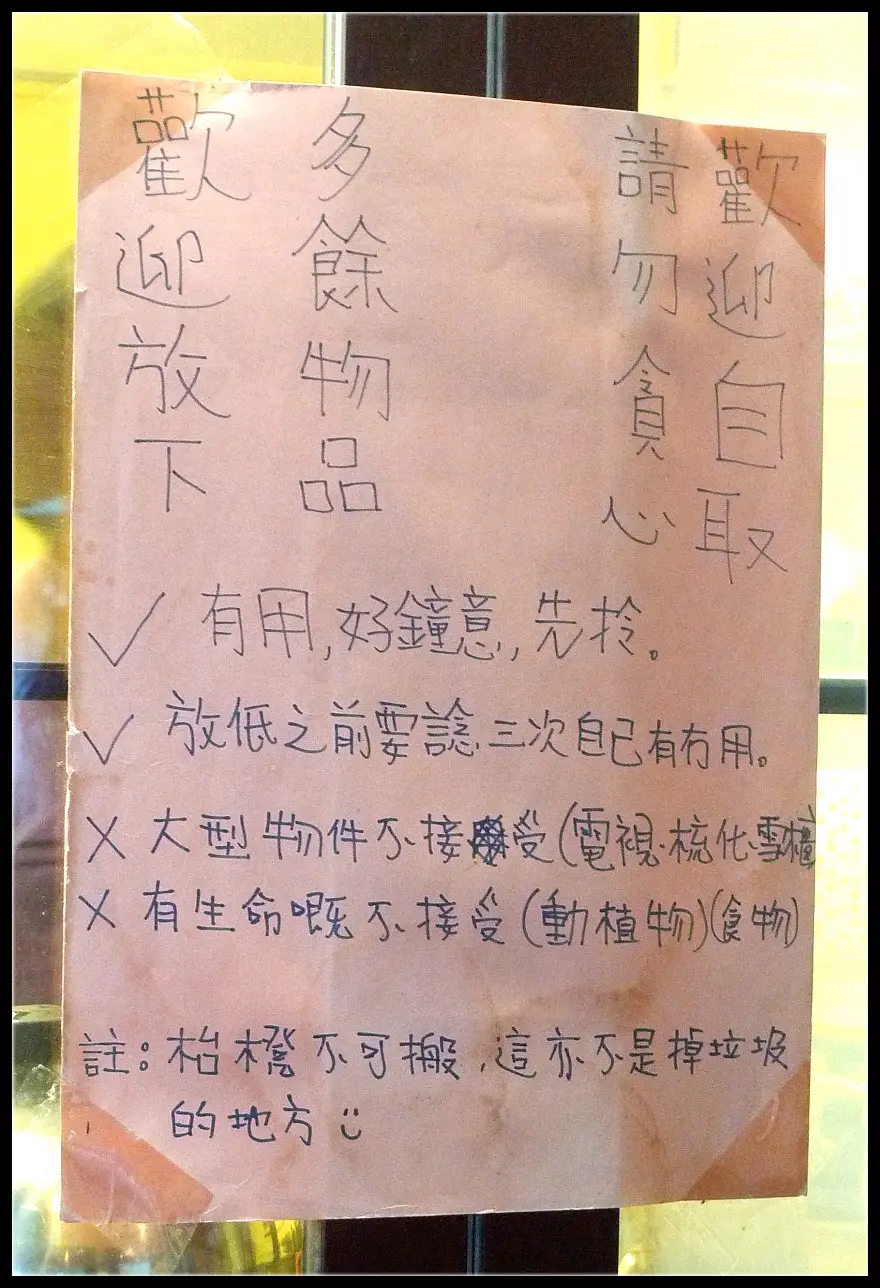 歡迎自取
請勿貪心
多餘物品
歡迎放下
✓ 有用,好鐘意,先拎。
✓ 放低之前要諗三次自己有冇用。
X 大型物件不接受(電視、梳化、雪櫃)
X 有生命嘅不接受(動植物)(食物)
註:枱櫈不可搬,這亦不是掉垃圾
的地方 :)